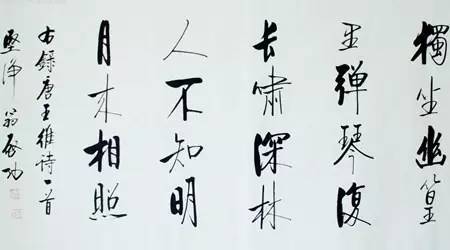 獨坐幽篁
里彈琴復
長嘯深林
人不知明
月来相照
右錄唐王維詩一首
堅淨翁啟功